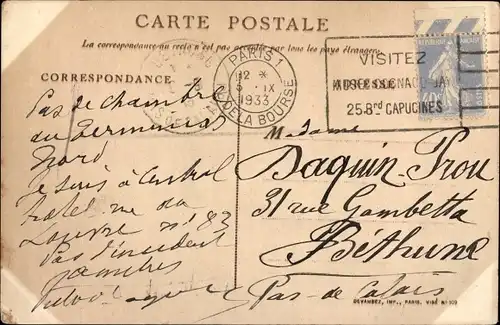 CARTE POSTALE
La correspondance au recto n'est pas acceptée par tous les pays étrangers
CORRESPONDANCE
PARIS 1
12 *
5 IX
1933
R. DE LA BOURSE
VISITEZ
MUSÉE COGNACQ-JAY
25 Bd CAPUCINES
ADRESSE
Pas de chambre
au Terminus
Nord
Je suis à Central
hotel rue du
Louvre
Pas d'incident
Madame
Daquin-Prou
31 rue Gambetta
Béthune
Pas-de-Calais
DEVAMBEZ, IMP., PARIS. VISÉ Nº